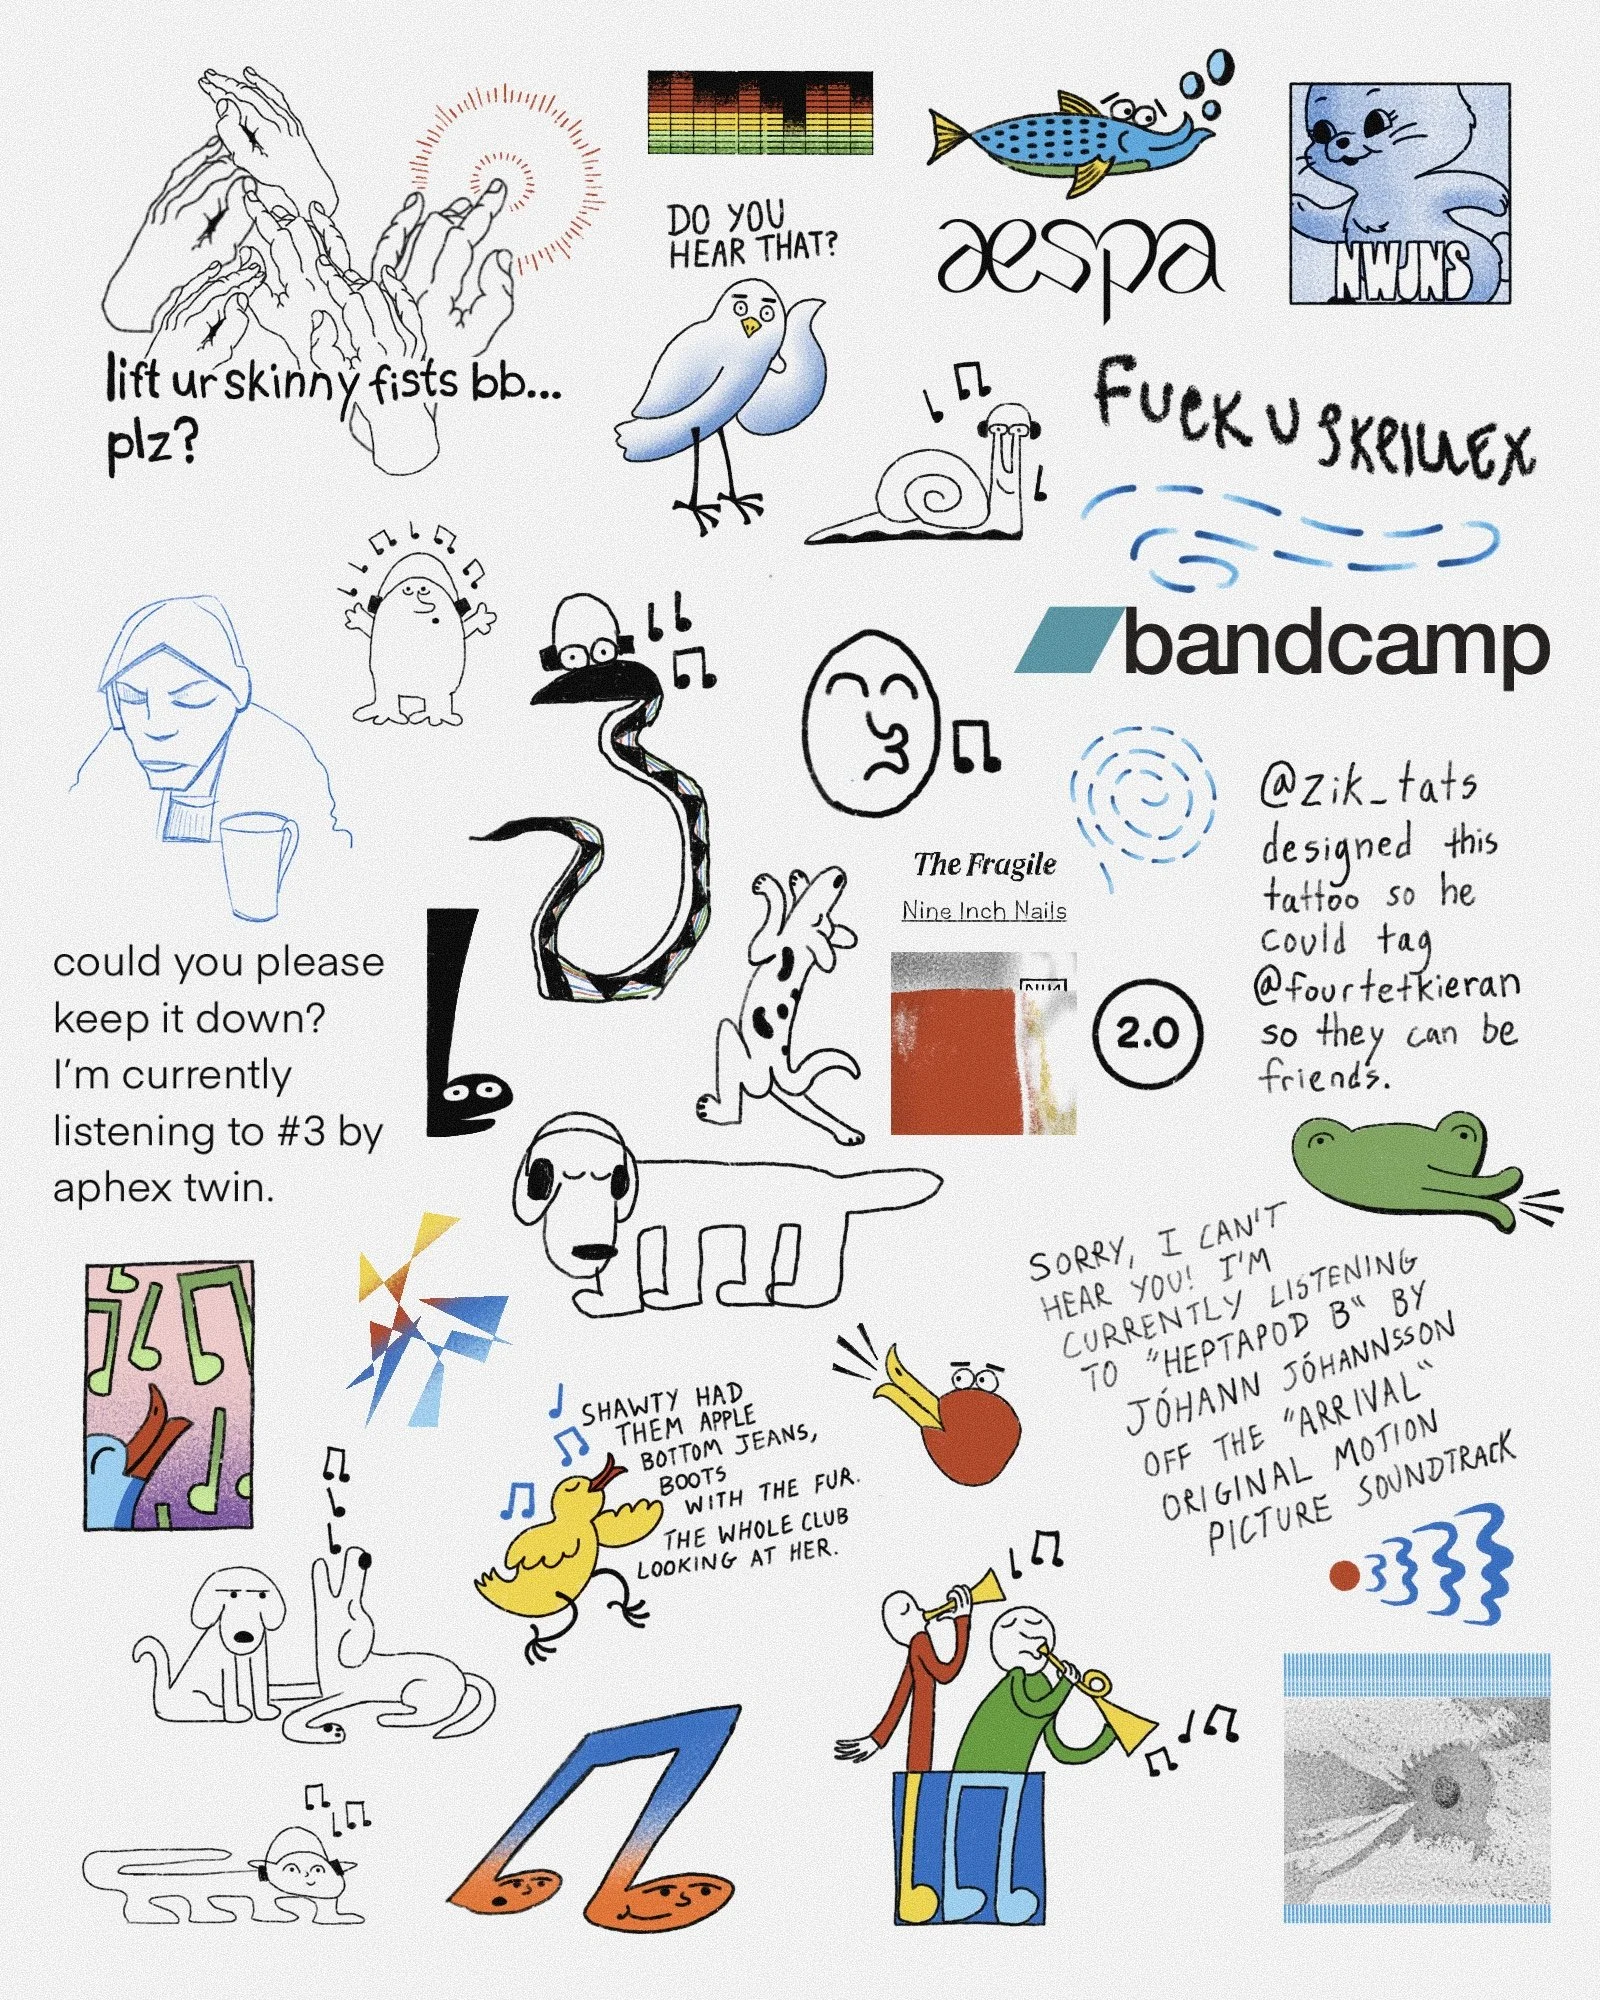 lift ur skinny fists bb...
plz?
DO YOU
HEAR THAT?
aespa
NWJNS
FUCK U SKRILLEX
bandcamp
The Fragile
Nine Inch Nails
NIN
2.0
@zik_tats
designed this
tattoo so he
could tag
@fourtetkieran
so they can be
friends.
could you please
keep it down?
I'm currently
listening to #3 by
aphex twin.
SORRY, I CAN'T
HEAR YOU! I'M
CURRENTLY LISTENING
TO "HEPTAPOD B" BY
JÓHANN JÓHANNSSON
OFF THE "ARRIVAL"
ORIGINAL MOTION
PICTURE SOUNDTRACK
SHAWTY HAD
THEM APPLE
BOTTOM JEANS,
BOOTS
WITH THE FUR.
THE WHOLE CLUB
LOOKING AT HER.